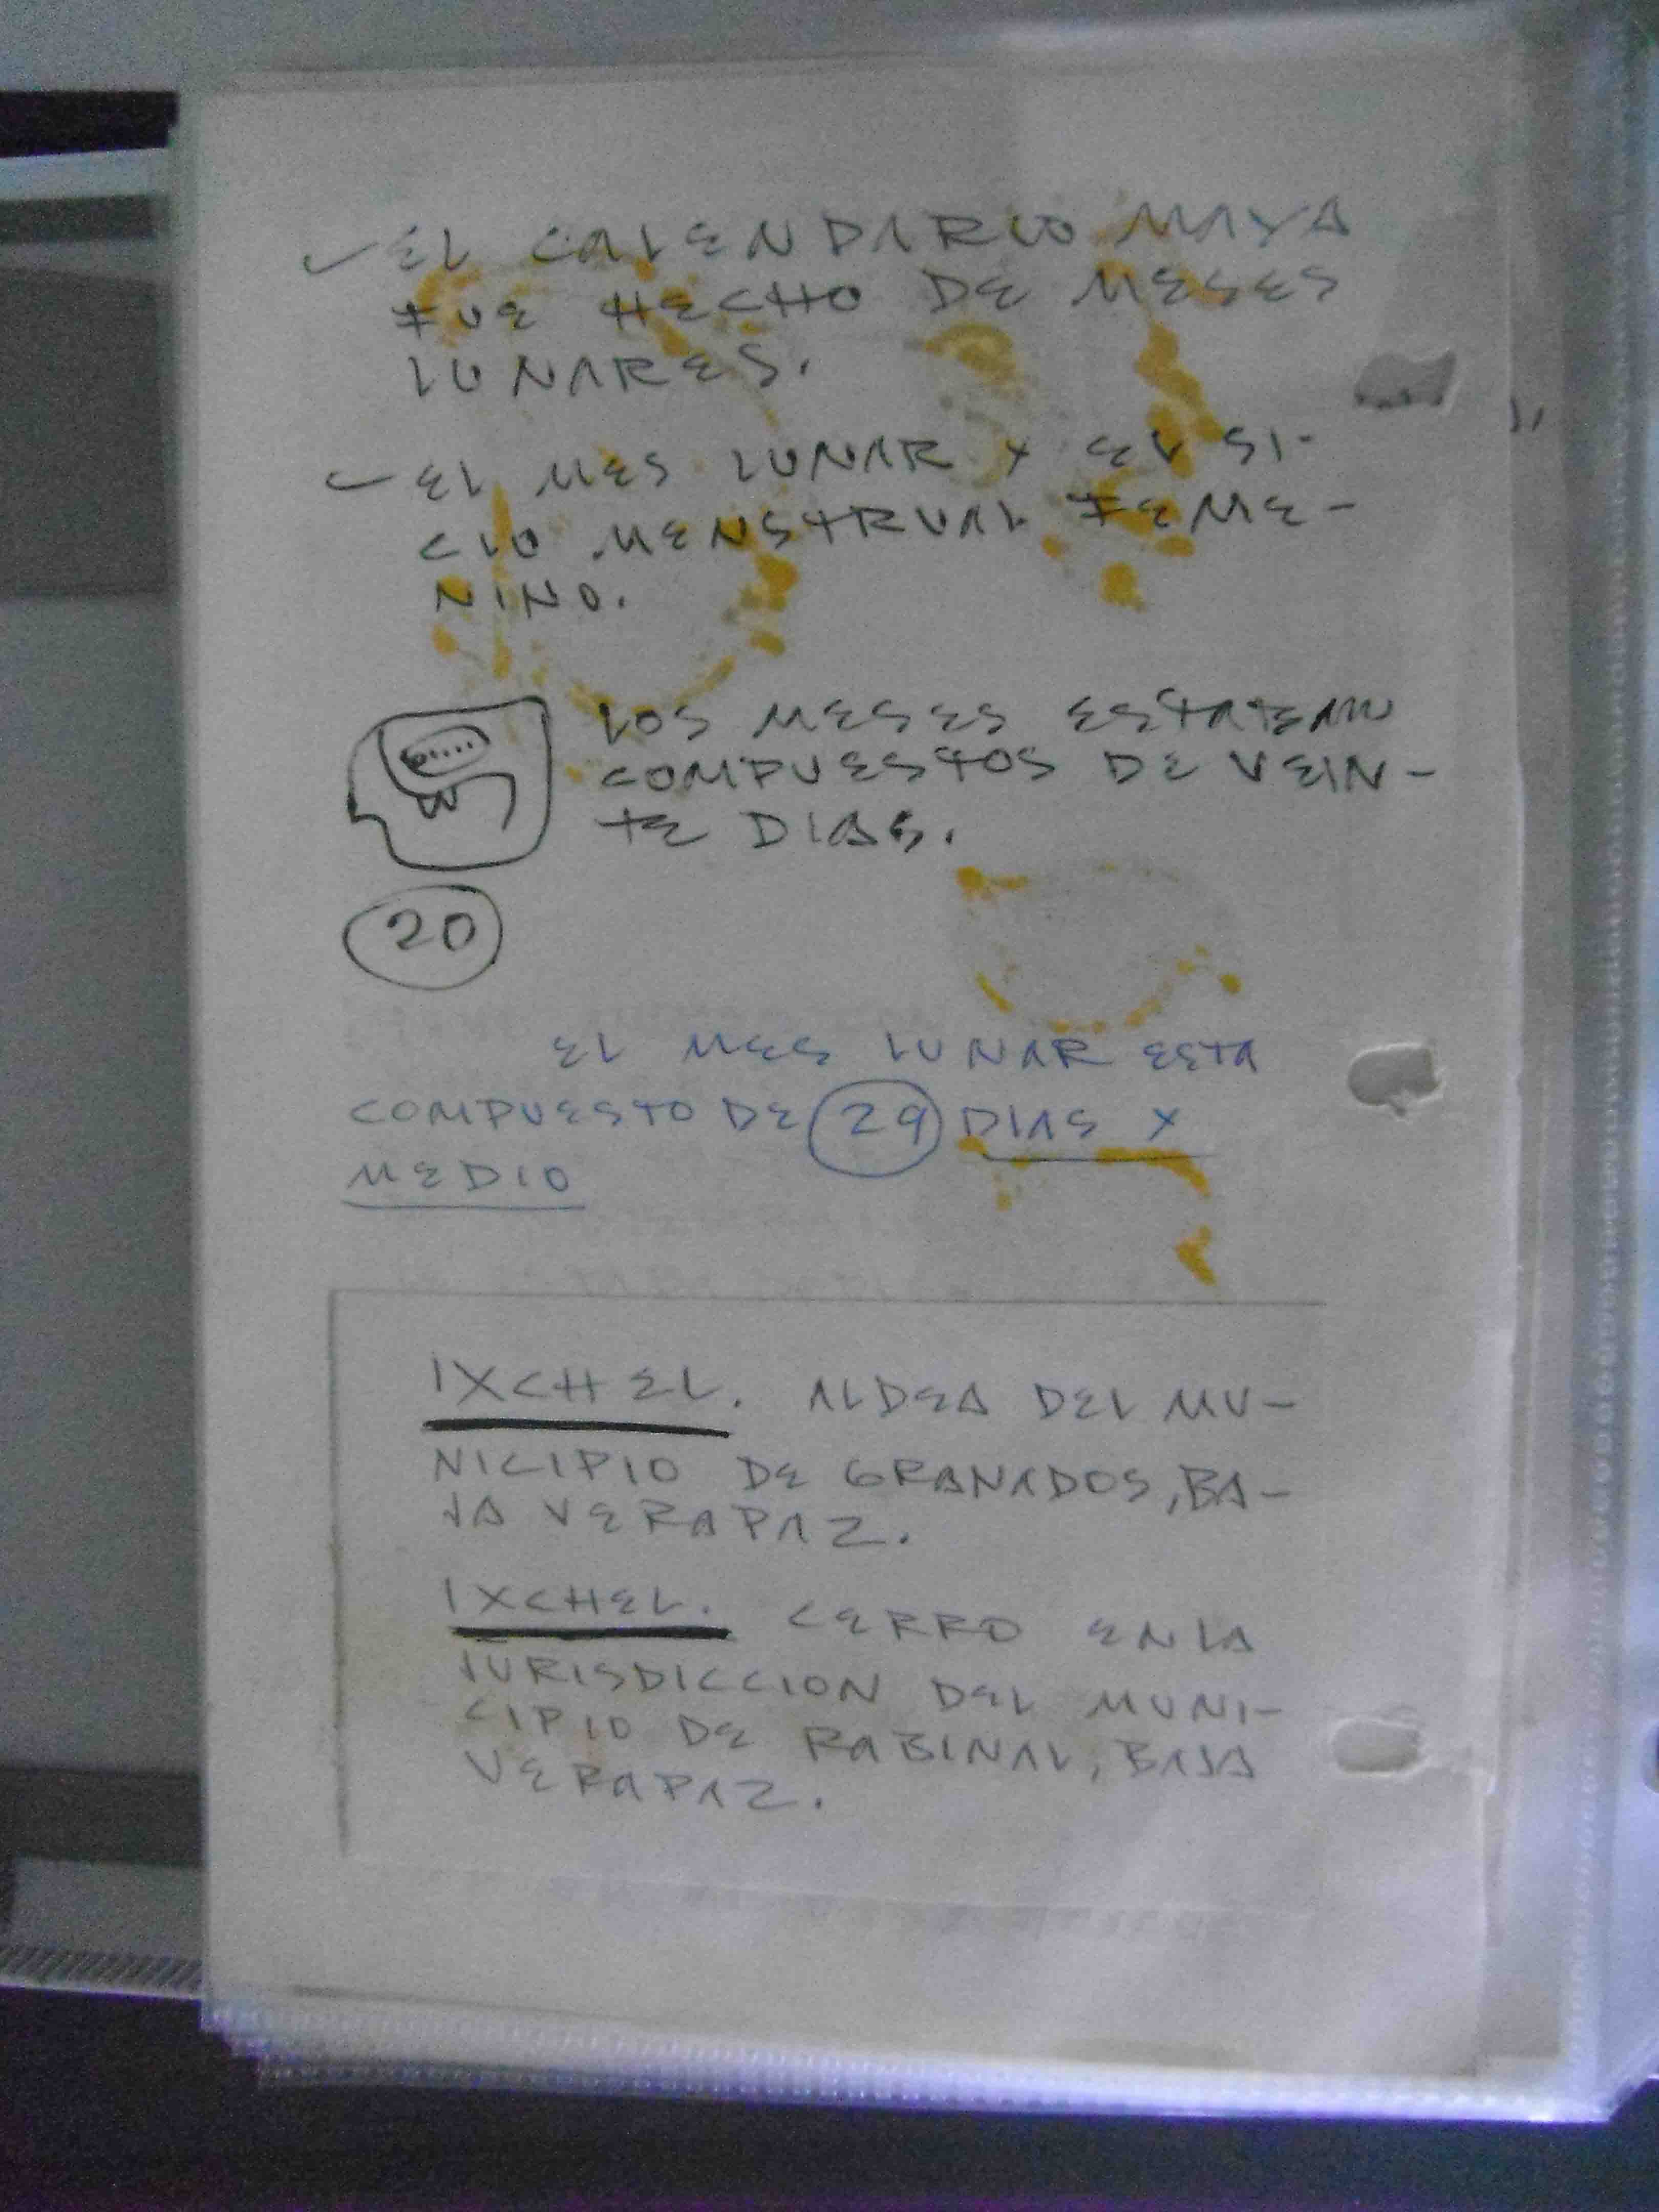 EL CALENDARIO MAYA
FUE HECHO DE MESES
LUNARES.
EL MES LUNAR Y EL SI-
CLO MENSTRUAL FEME-
NINO.
LOS MESES ESTABAN
COMPUESTOS DE VEIN-
TE DIAS.
20
EL MES LUNAR ESTA
COMPUESTO DE 29 DIAS Y
MEDIO
IXCHEL. ALDEA DEL MU-
NICIPIO DE GRANADOS, BA-
JA VERAPAZ.
IXCHEL. CERRO EN LA
JURISDICCION DEL MUNI-
CIPIO DE RABINAL, BAJA
VERAPAZ.